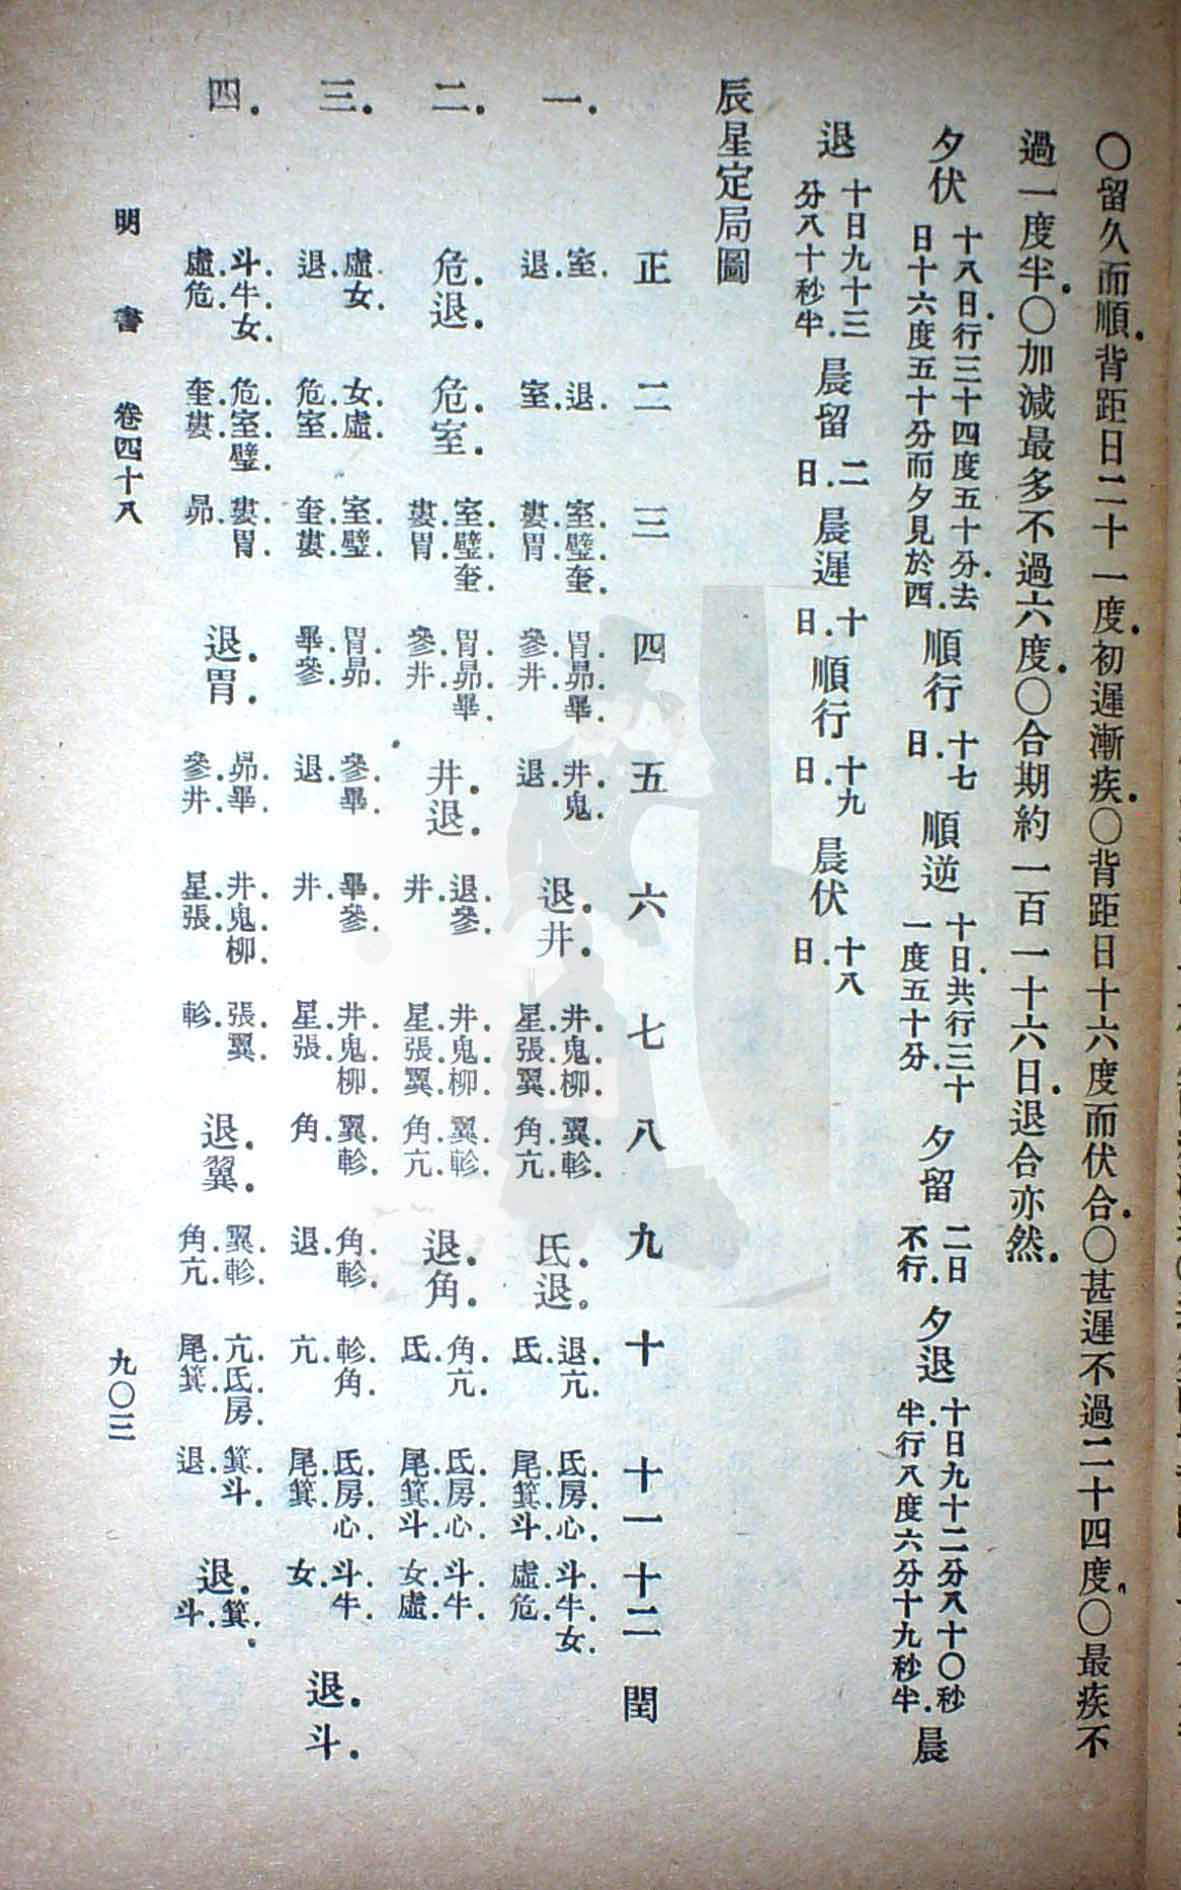 〇留久而順.背距日二十一度.初遲漸疾.〇背距日十六度而伏合.〇甚遲不過二十四度.〇最疾不
過一度半.〇加減最多不過六度.〇合期約一百一十六日.退合亦然.
夕伏 十八日.行三十四度五十分.去日十六度五十分而夕見於西. 順行 十七日. 順逆 十日.共行三十一度五十分. 夕留 二日不行. 夕退 十日九十二分八十〇秒半.行八度六分十九秒半. 晨
退 十日九十三分八十秒半. 晨留 二日. 晨遲 十日. 順行 十九日. 晨伏 十八日.
辰星定局圖
正 二 三 四 五 六 七 八 九 十 十一 十二 閏
一. 室.退. 退.室. 室.璧.奎.婁.胃. 胃.昴.畢.參.井. 井.鬼.退. 退.井. 井.鬼.柳.星.張.翼. 翼.軫.角.亢. 氐.退。 退.亢.氐. 氐.房.心.尾.箕.斗. 斗.牛.女.虛.危.
二. 危.退. 危.室. 室.璧.奎.婁.胃. 胃.昴.畢.參.井. 井.退. 退.參.井. 井.鬼.柳.星.張.翼. 翼.軫.角.亢. 退.角. 角.亢.氐. 氐.房.心.尾.箕.斗. 斗.牛.女.虛.
三. 虛.女.退. 女.虛.危.室. 室.璧.奎.婁. 胃.昴.畢.參. 參.畢.退. 畢.參.井. 井.鬼.柳.星.張. 翼.軫.角. 角.軫.退. 軫.角.亢. 氐.房.心.尾.箕. 斗.牛.女. 退.斗.
四. 斗.牛.女.虛.危. 危.室.璧.奎.婁. 婁.胃.昴. 退.胃. 昴.畢.參.井. 井.鬼.柳.星.張. 張.翼.軫. 退.翼. 翼.軫.角.亢. 亢.氐.房.尾.箕. 箕.斗.退. 退.箕.斗.
明書 卷四十八
九〇三